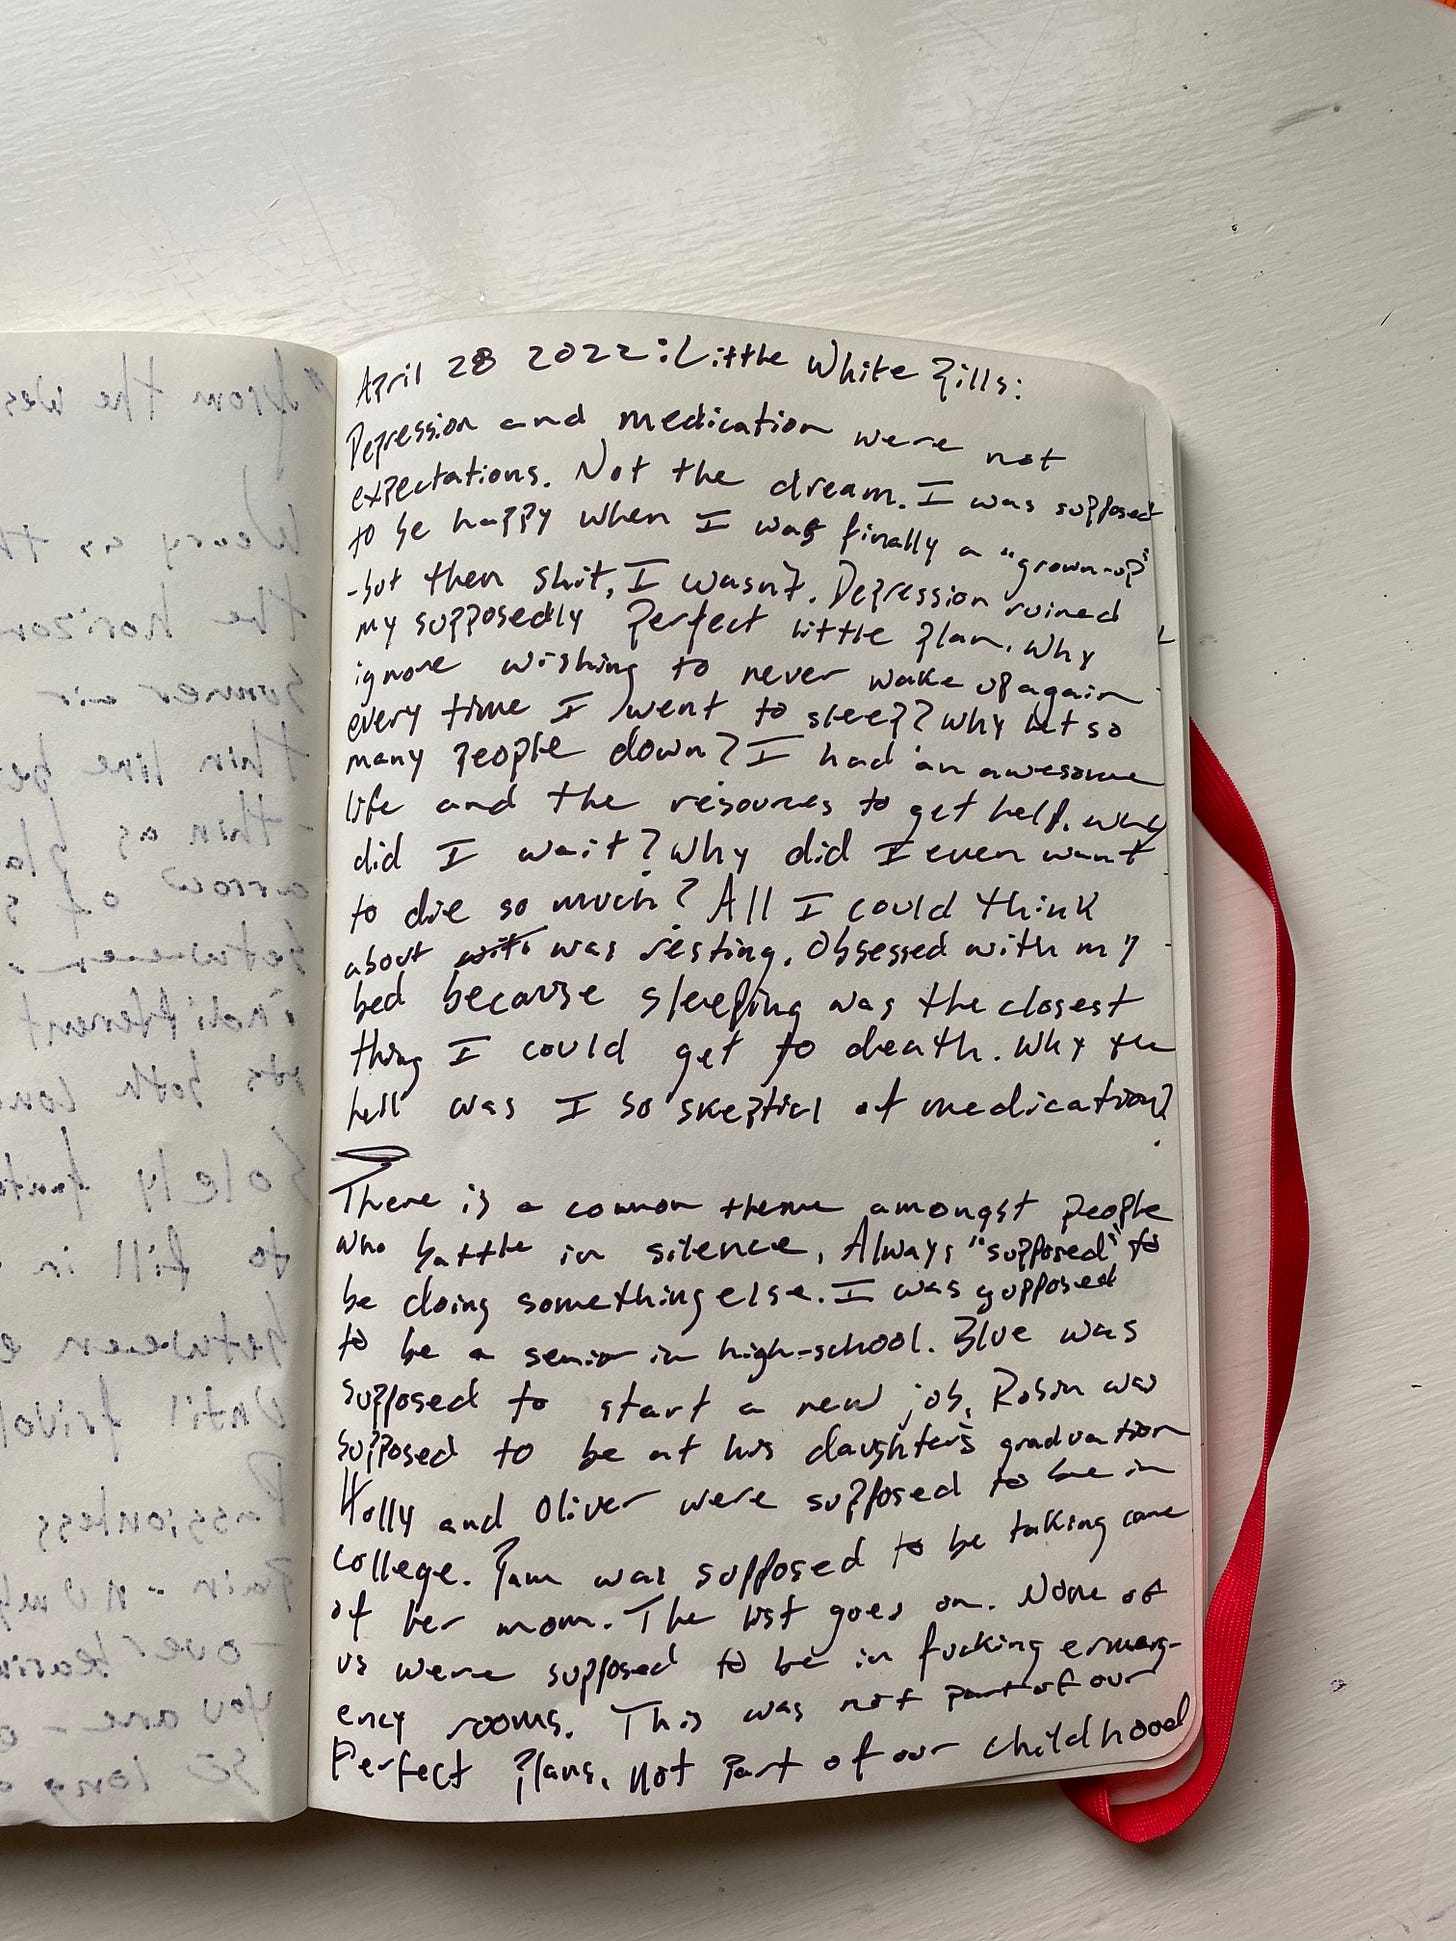 April 28 2022: Little White Pills:
Depression and medication were not
expectations. Not the dream. I was supposed
to be happy when I was finally a "grown-up"
-but then shit, I wasn't. Depression ruined
my supposedly perfect little plan. Why
ignore wishing to never wake up again
every time I went to sleep? Why let so
many people down? I had an awesome
life and the resources to get help. why
did I wait? Why did I even want
to die so much? All I could think
about was resting. Obsessed with my
bed because sleeping was the closest
thing I could get to death. Why the
hell was I so skeptical of medication?
There is a common theme amongst people
who battle in silence. Always "supposed" to
be doing something else. I was supposed
to be a senior in high-school. Blue was
supposed to start a new job. Robin was
supposed to be at his daughter's graduation
Holly and Oliver were supposed to be in
college. Pam was supposed to be taking care
of her mom. The list goes on. None of
us were supposed to be in fucking emerg-
ency rooms. This was not part of our
Perfect Plans, not part of our childhood
"from the Wes
the horizon
summer air
thin line be
-thin as gla
arrow of s
between
indifferent
its both
Solely
to fill in
between e
Until frivol
Passionless
pain - 
-over
you are - 
so long